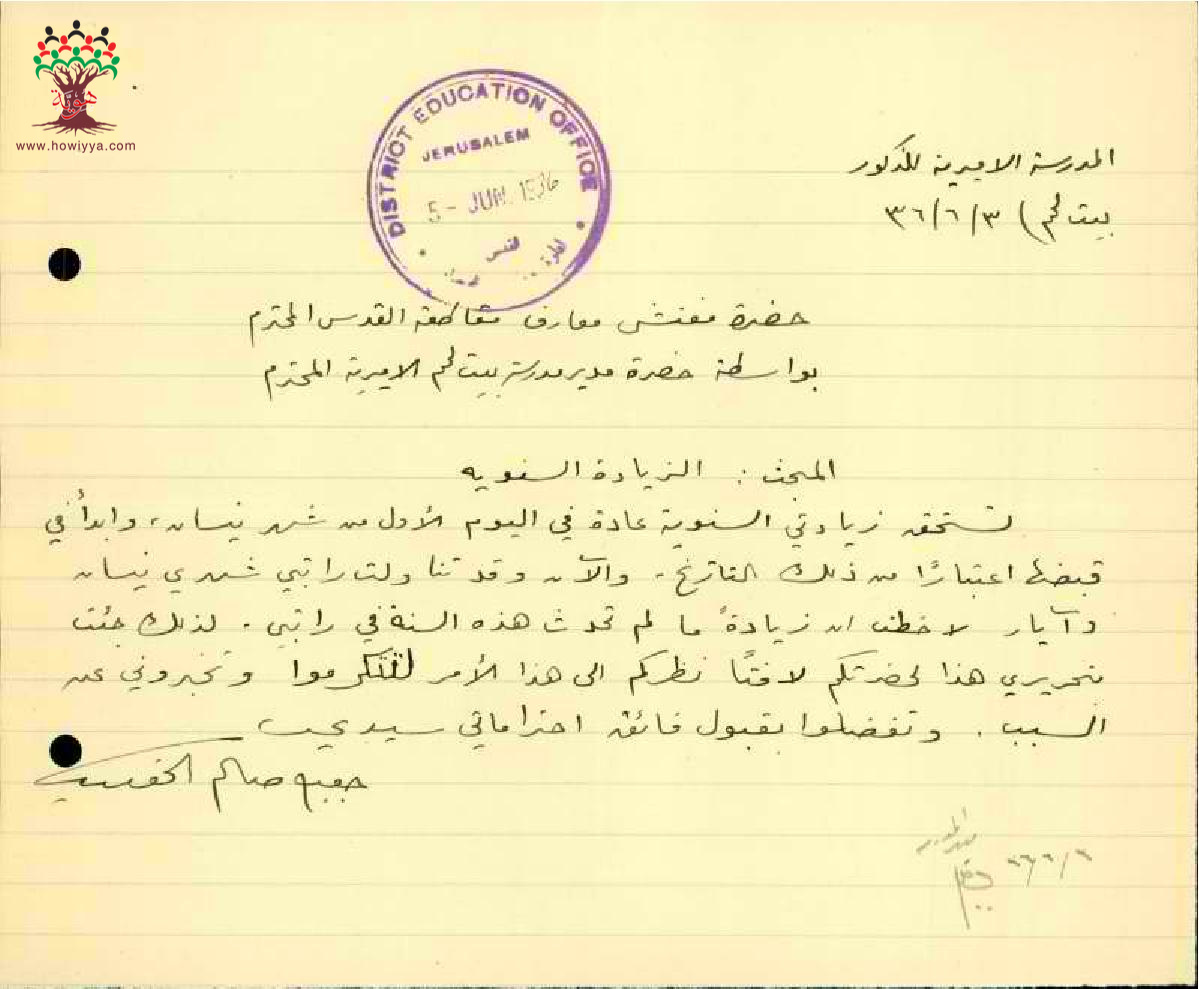 هوية
www.howiyya.com
DISTRICT EDUCATION OFFICE
JERUSALEM
5 - JUN. 1936
القدس
المدرسة الاميرية للذكور
بيت لحم) ٣/٦/٣٦
حضرة مفتش معارف مقاطعة القدس المحترم
بواسطة حضرة مدير مدرسة بيت لحم الاميرية المحترم
المبحث : الزيادة السنويه
تستحق زيادتي السنوية عادة في اليوم الأول من شهر نيسان، وابدأ في
قبضها اعتبارًا من ذلك التاريخ. والآن وقد تناولت راتبي شهري نيسان
وآيار لاحظت ان زيادةً ما لم تحدث هذه السنة في راتبي. لذلك جئت
بتحريري هذا لحضرتكم لافتًا نظركم الى هذا الأمر لتتكرموا وتخبروني عن
السبب. وتفضلوا بقبول فائق احتراماتي سيدي
صالح
مدير المدرسة